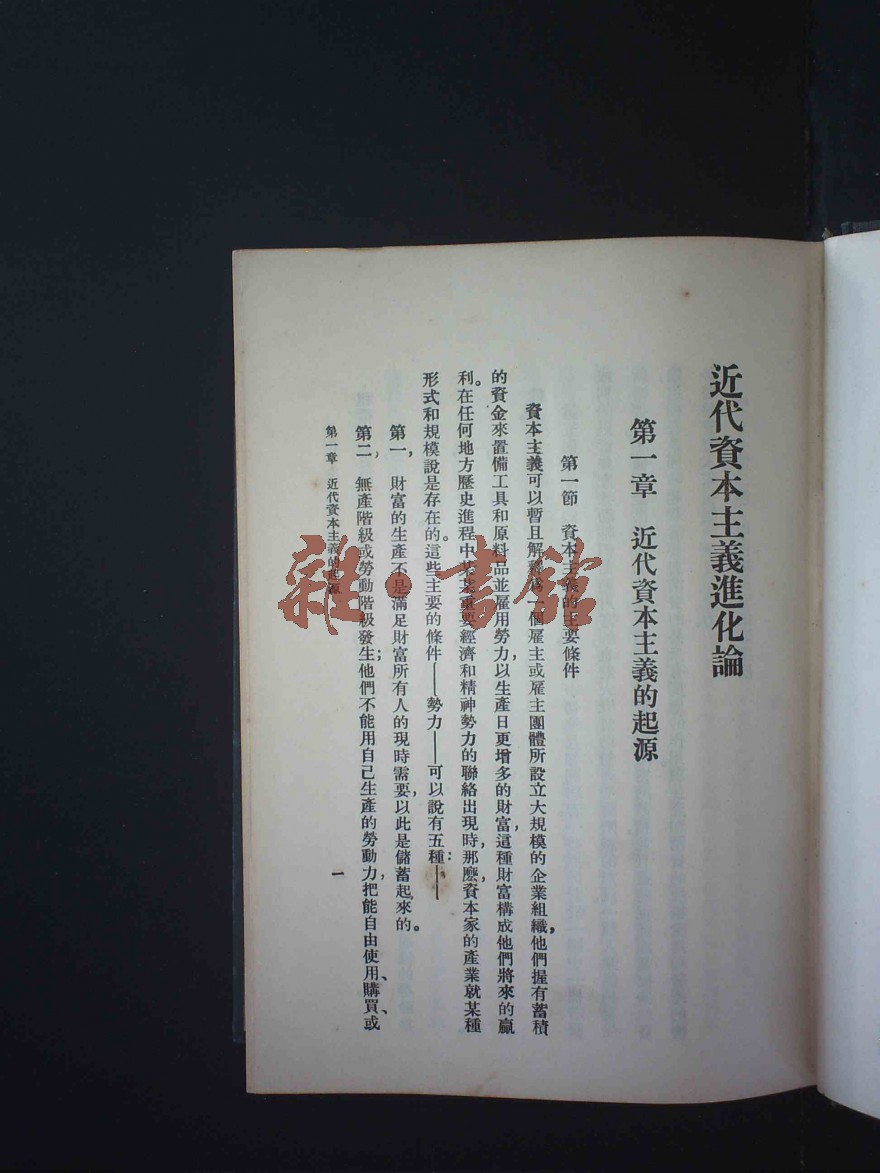 近代資本主義進化論
第一章　近代資本主義的起源
第一節　資本主義的主要條件
資本主義可以暫且解釋爲一個雇主或雇主團體所設立大規模的企業組織，他們握有蓄積
的資金來置備工具和原料品並雇用勞力，以生產日更增多的財富，這種財富構成他們將來的贏
利。在任何地方歷史進程中某某重要經濟和精神勢力的聯絡出現時，那麽，資本家的產業就某種
形式和規模說是存在的。這些主要的條件——勢力——可以說有五種：——
第一，　財富的生產不是滿足財富所有人的現時需要，以此是儲蓄起來的。
第二，　無產階級或勞動階級發生；他們不能用自己生產的勞動力，把能自由使用、購買、或
第一章　近代資本主義的起源
一
雜·書館